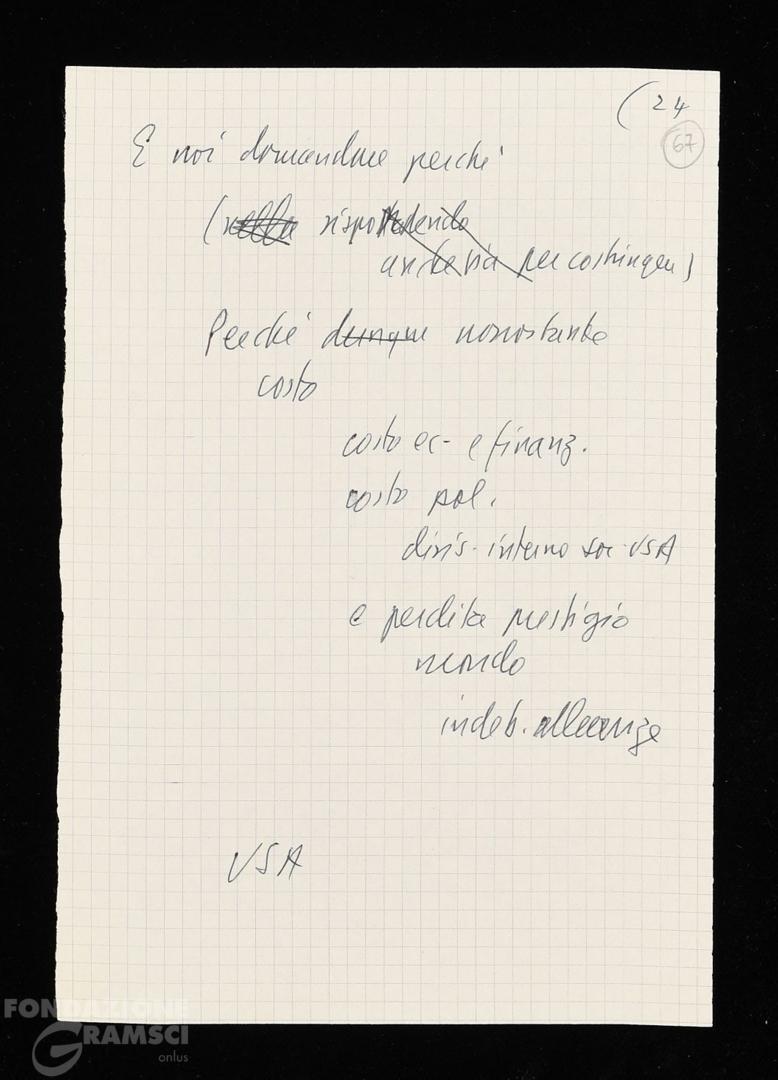 ( 24
67
E noi domandare perché
(nella rispondendo
anche via per costringere)
Perché dunque nonostante
costo
costo ec- e finanz.
costo pol.
divis. interno soc. USA
e perdita prestigio
mondo
indeb. alleanze
USA
FONDAZIONE
GRAMSCI
onlus